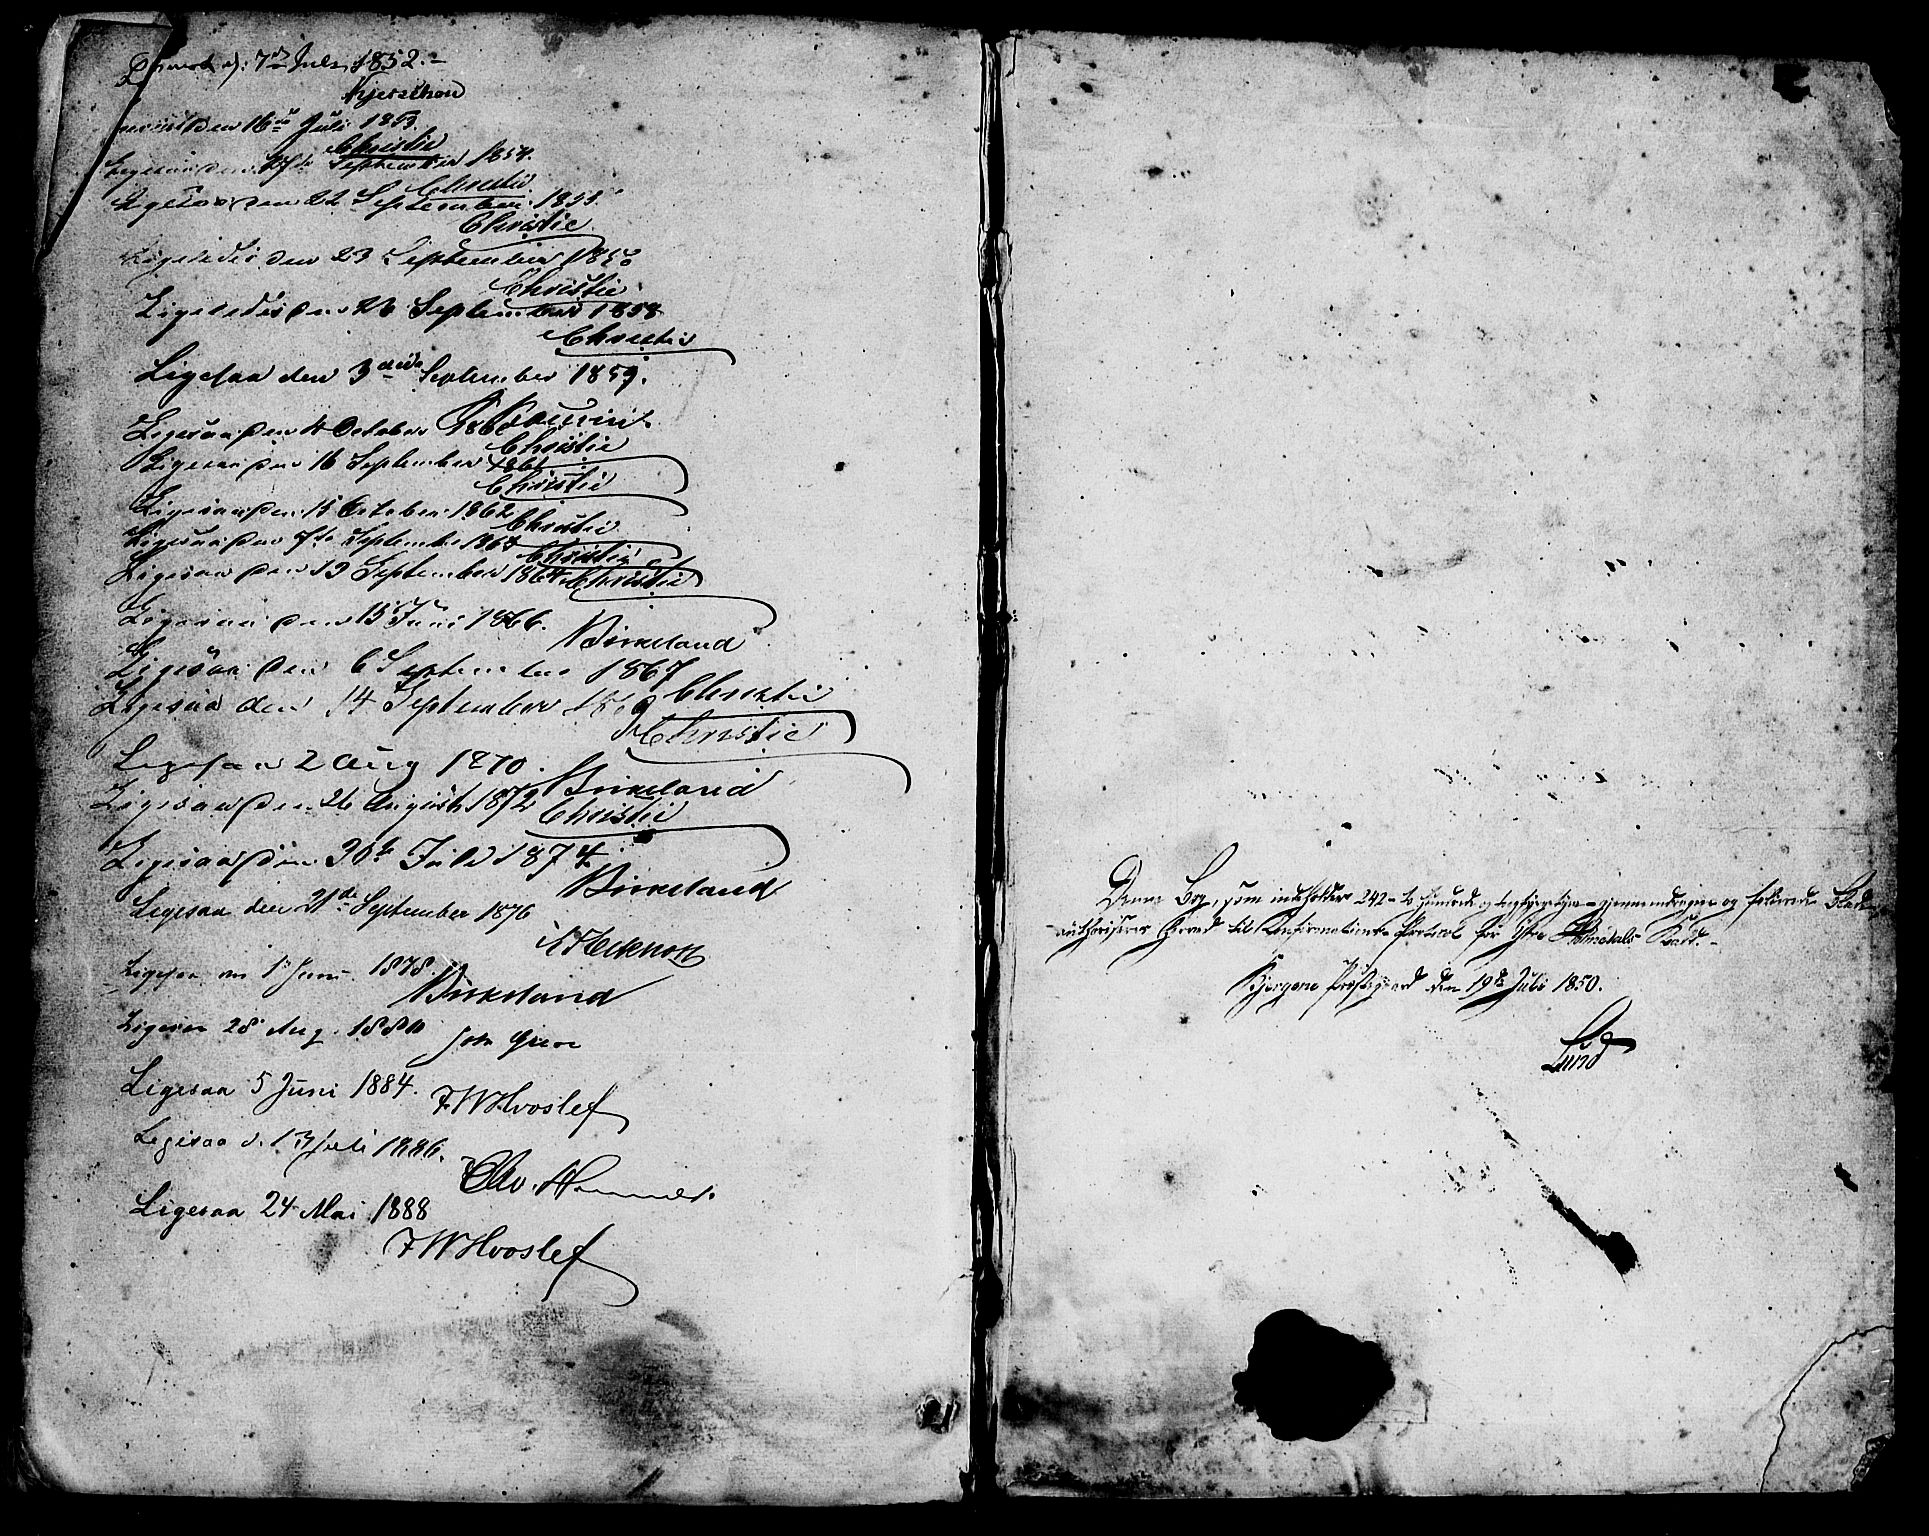 d. 7de Juli 1852.
Kjerschou
den 16de Juli 1853.
Christie
Ligesaa den 27de September 1854.
Christie
Ligesaa den 22 September 1855
Christie
Ligeledes den 23 September 1856
Christie
Ligeledes den 26 September 1858
Christie
Ligesaa den 3die September 1859.
Ligesaa den 4 October 1860
Christie
Ligesaa den 16 September 1861
Christie
Ligesaa den 15 October 1862
Christie
Ligesaa den September 1863
Christie
Ligesaa den 19 September 1864
Christie
Ligesaa den 15 Juni 1866.
Birkeland
Ligesaa den 6 September 1867
Christie
Ligesaa den 14 September 1869
Christie
Ligesaa 2 Aug 1870.
Birkeland
Ligesaa den 26 August 1872
Christie
Ligesaa den 30te Juli 1874
Birkeland
Ligesaa den 21de September 1876
Ligesaa 1 Juni 1878.
Birkeland
Ligesaa 28 Aug. 1880
Joh Greve
Ligesaa 5 Juni 1884.
F.W Hvoslef
Ligesaa d. 13 Juli 1886.
Ligesaa 24 Mai 1888
F W Hvoslef
Denne Bog, som indeholder 242 - to hundrede og to og fyrretyve - gjennemdragne og folierede Blade
authoriseres herved til Confirmations-Protocol for Ytre Holmedals Præstegjeld den 19de Juli 1850.
Lund